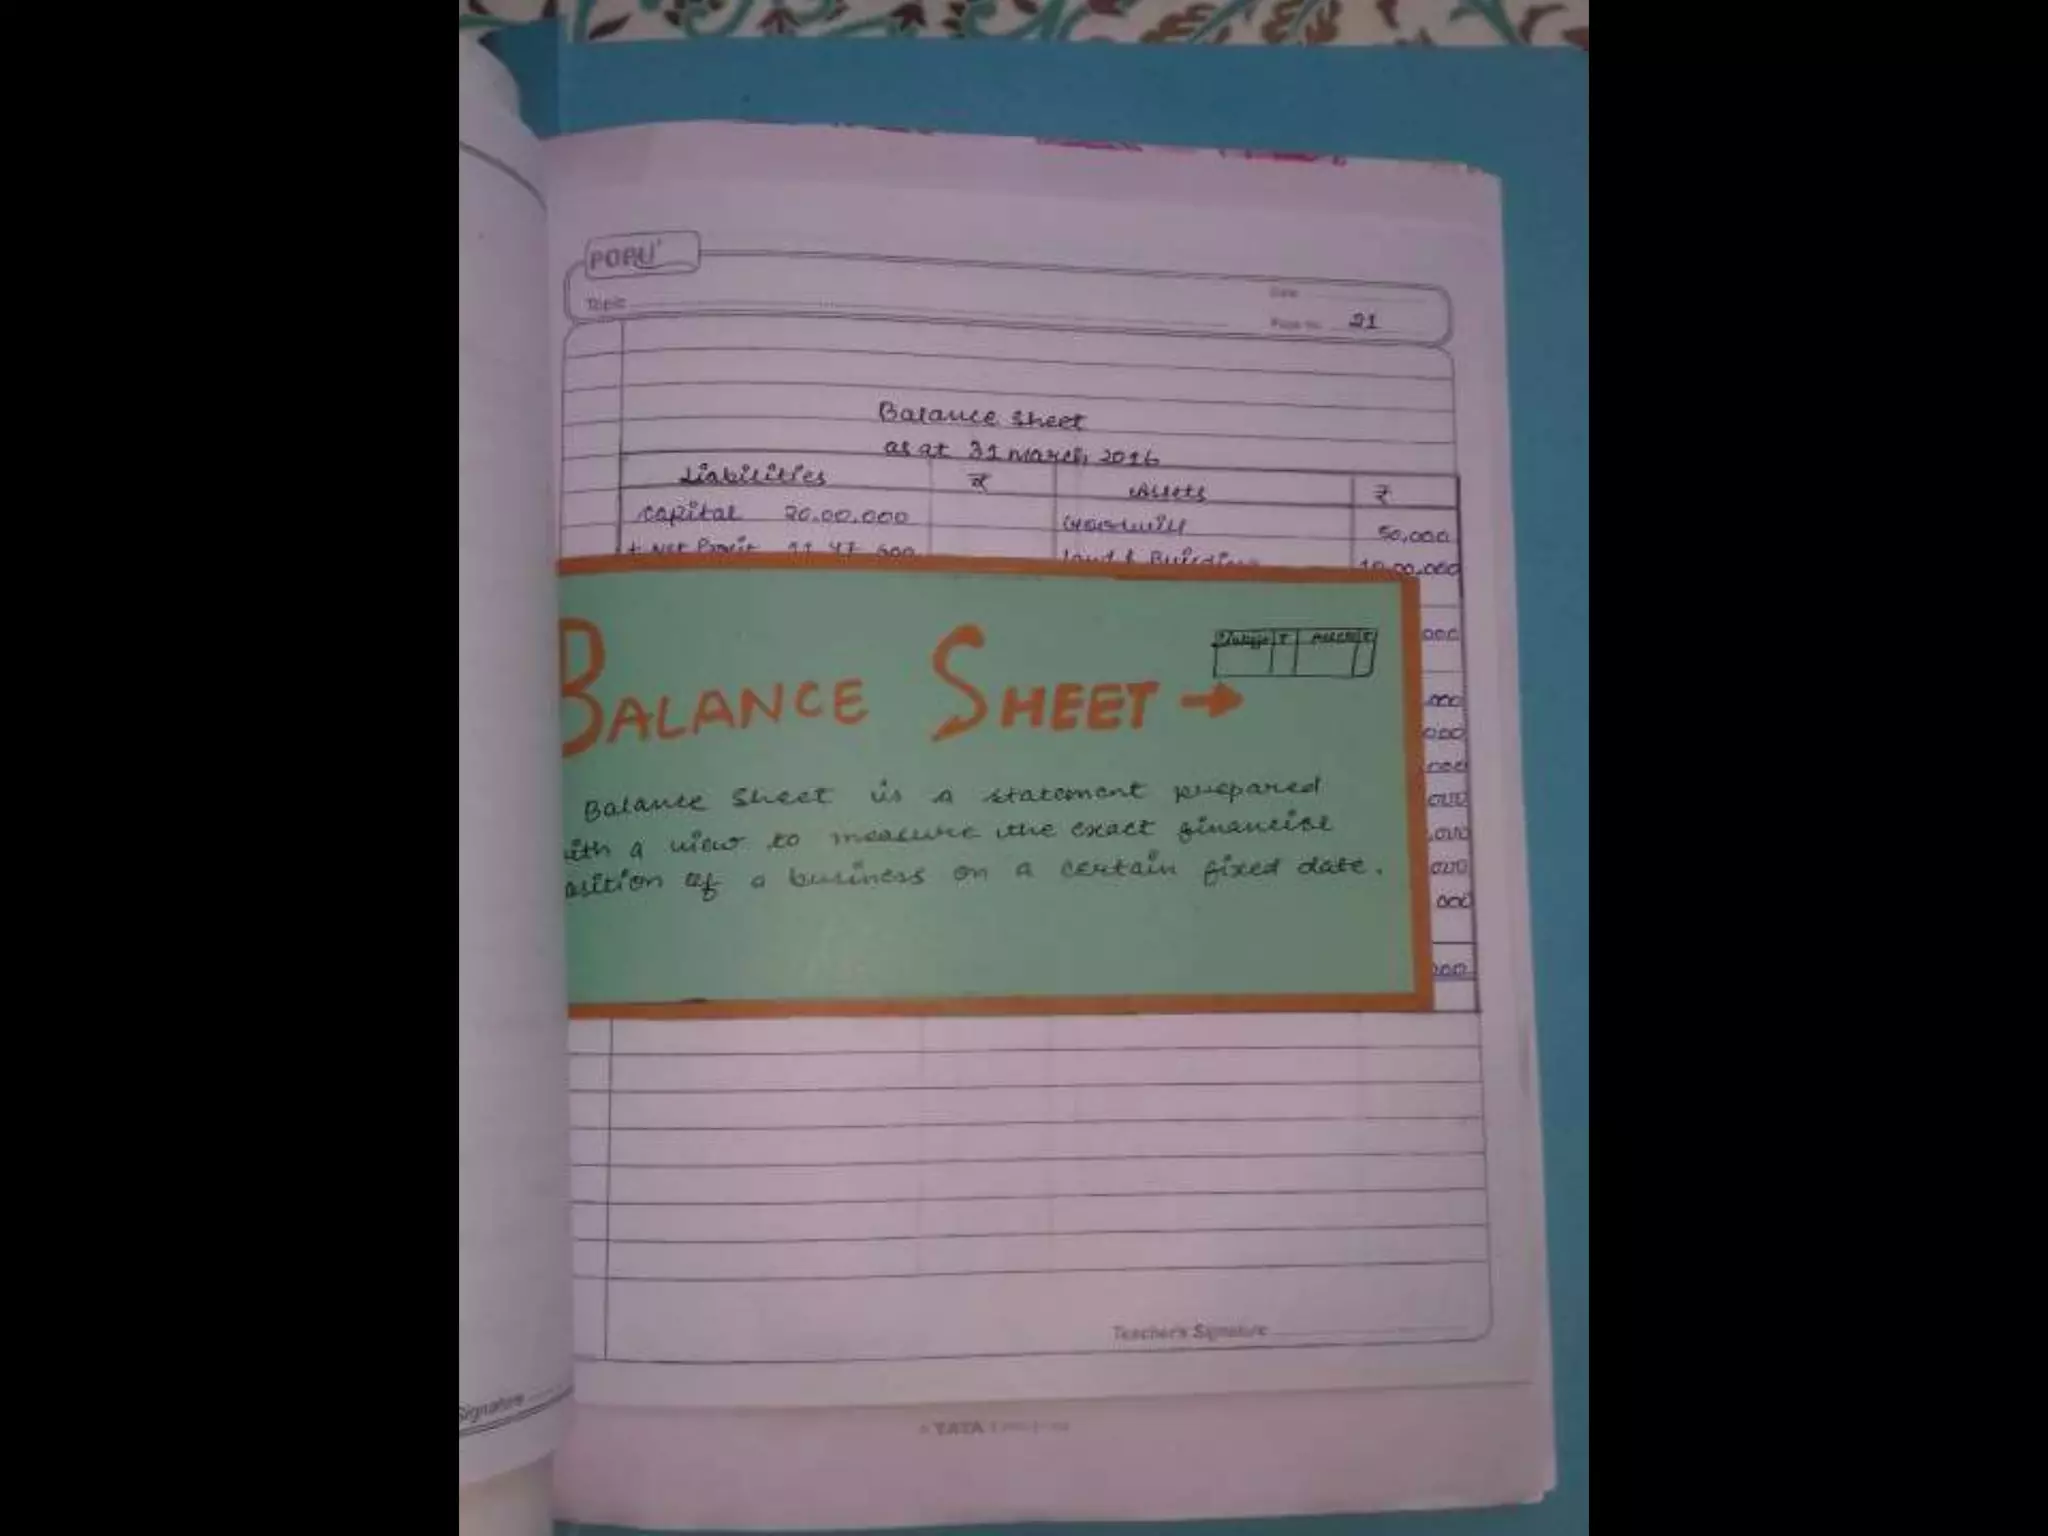 Topic
Date
Page No. 21
Balance Sheet
as at 31 March, 2016
Liabilities ₹ Assets ₹
Capital 20,00,000 Goodwill 50,000
+ Net Profit 11,47,600 Land & Building 10,00,000
000
BALANCE SHEET →
₹ Assets ₹
,000
000
Balance Sheet is a statement prepared
ith a view to measure the exact financial
osition of a business on a certain fixed date.
000
000
Teacher's Signature
Signature
TATA